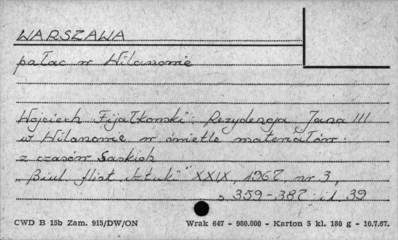 WARSZAWA
pałac w Wilanowie
Wojciech Fijałkowski: Rezydencja Jana III
w Wilanowie w świetle materiałów
z czasów Saskich
„Biul. Hist Sztuki" XXIX, 1967 nr 3,
s 359-387 il 39
CWD B 15b Zam. 915/DW/ON Wrak 647 - 980.000 - Karton 5 kl. 180 g - 10.7.67.